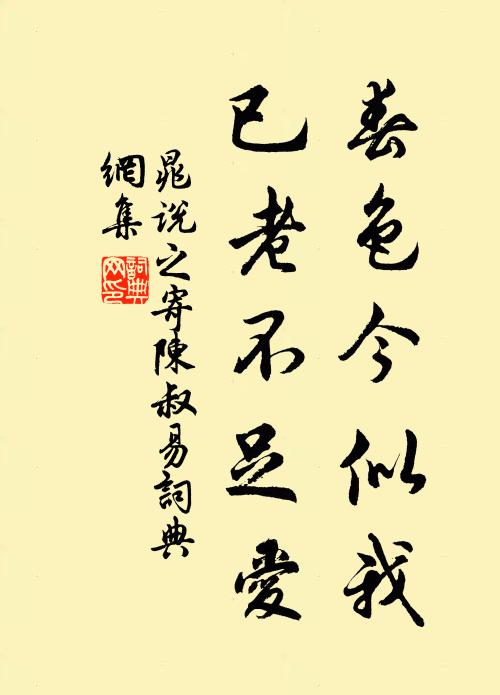 春色今似我
已老不足愛
晁说之寄陳叔易詞典
網集
詞典
网印